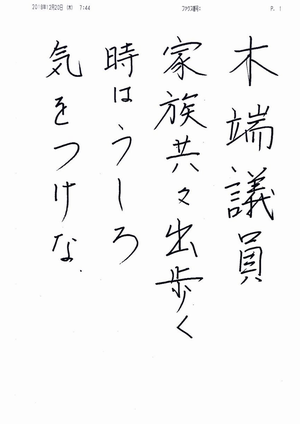 2018年12月20日 (木) 7:44 ﾌｧｸｽ番号: P. 1
木端議員
家族共々出歩く
時はうしろ
気をつけな.